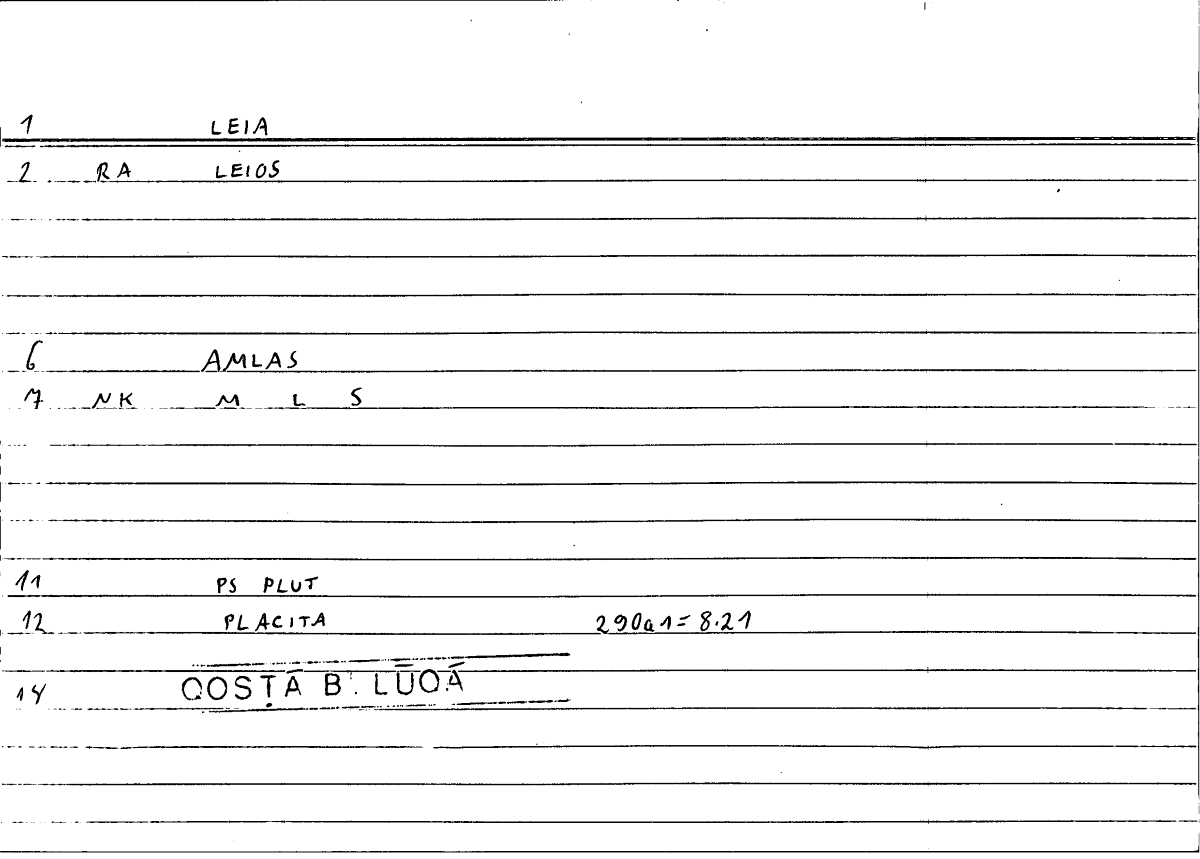 1 LEIA
2 RA LEIOS
6 AMLAS
7 NK M L S
11 PS PLUT
12 PLACITA 290a1=8.21
14 QOSṬĀ B. LŪQĀ